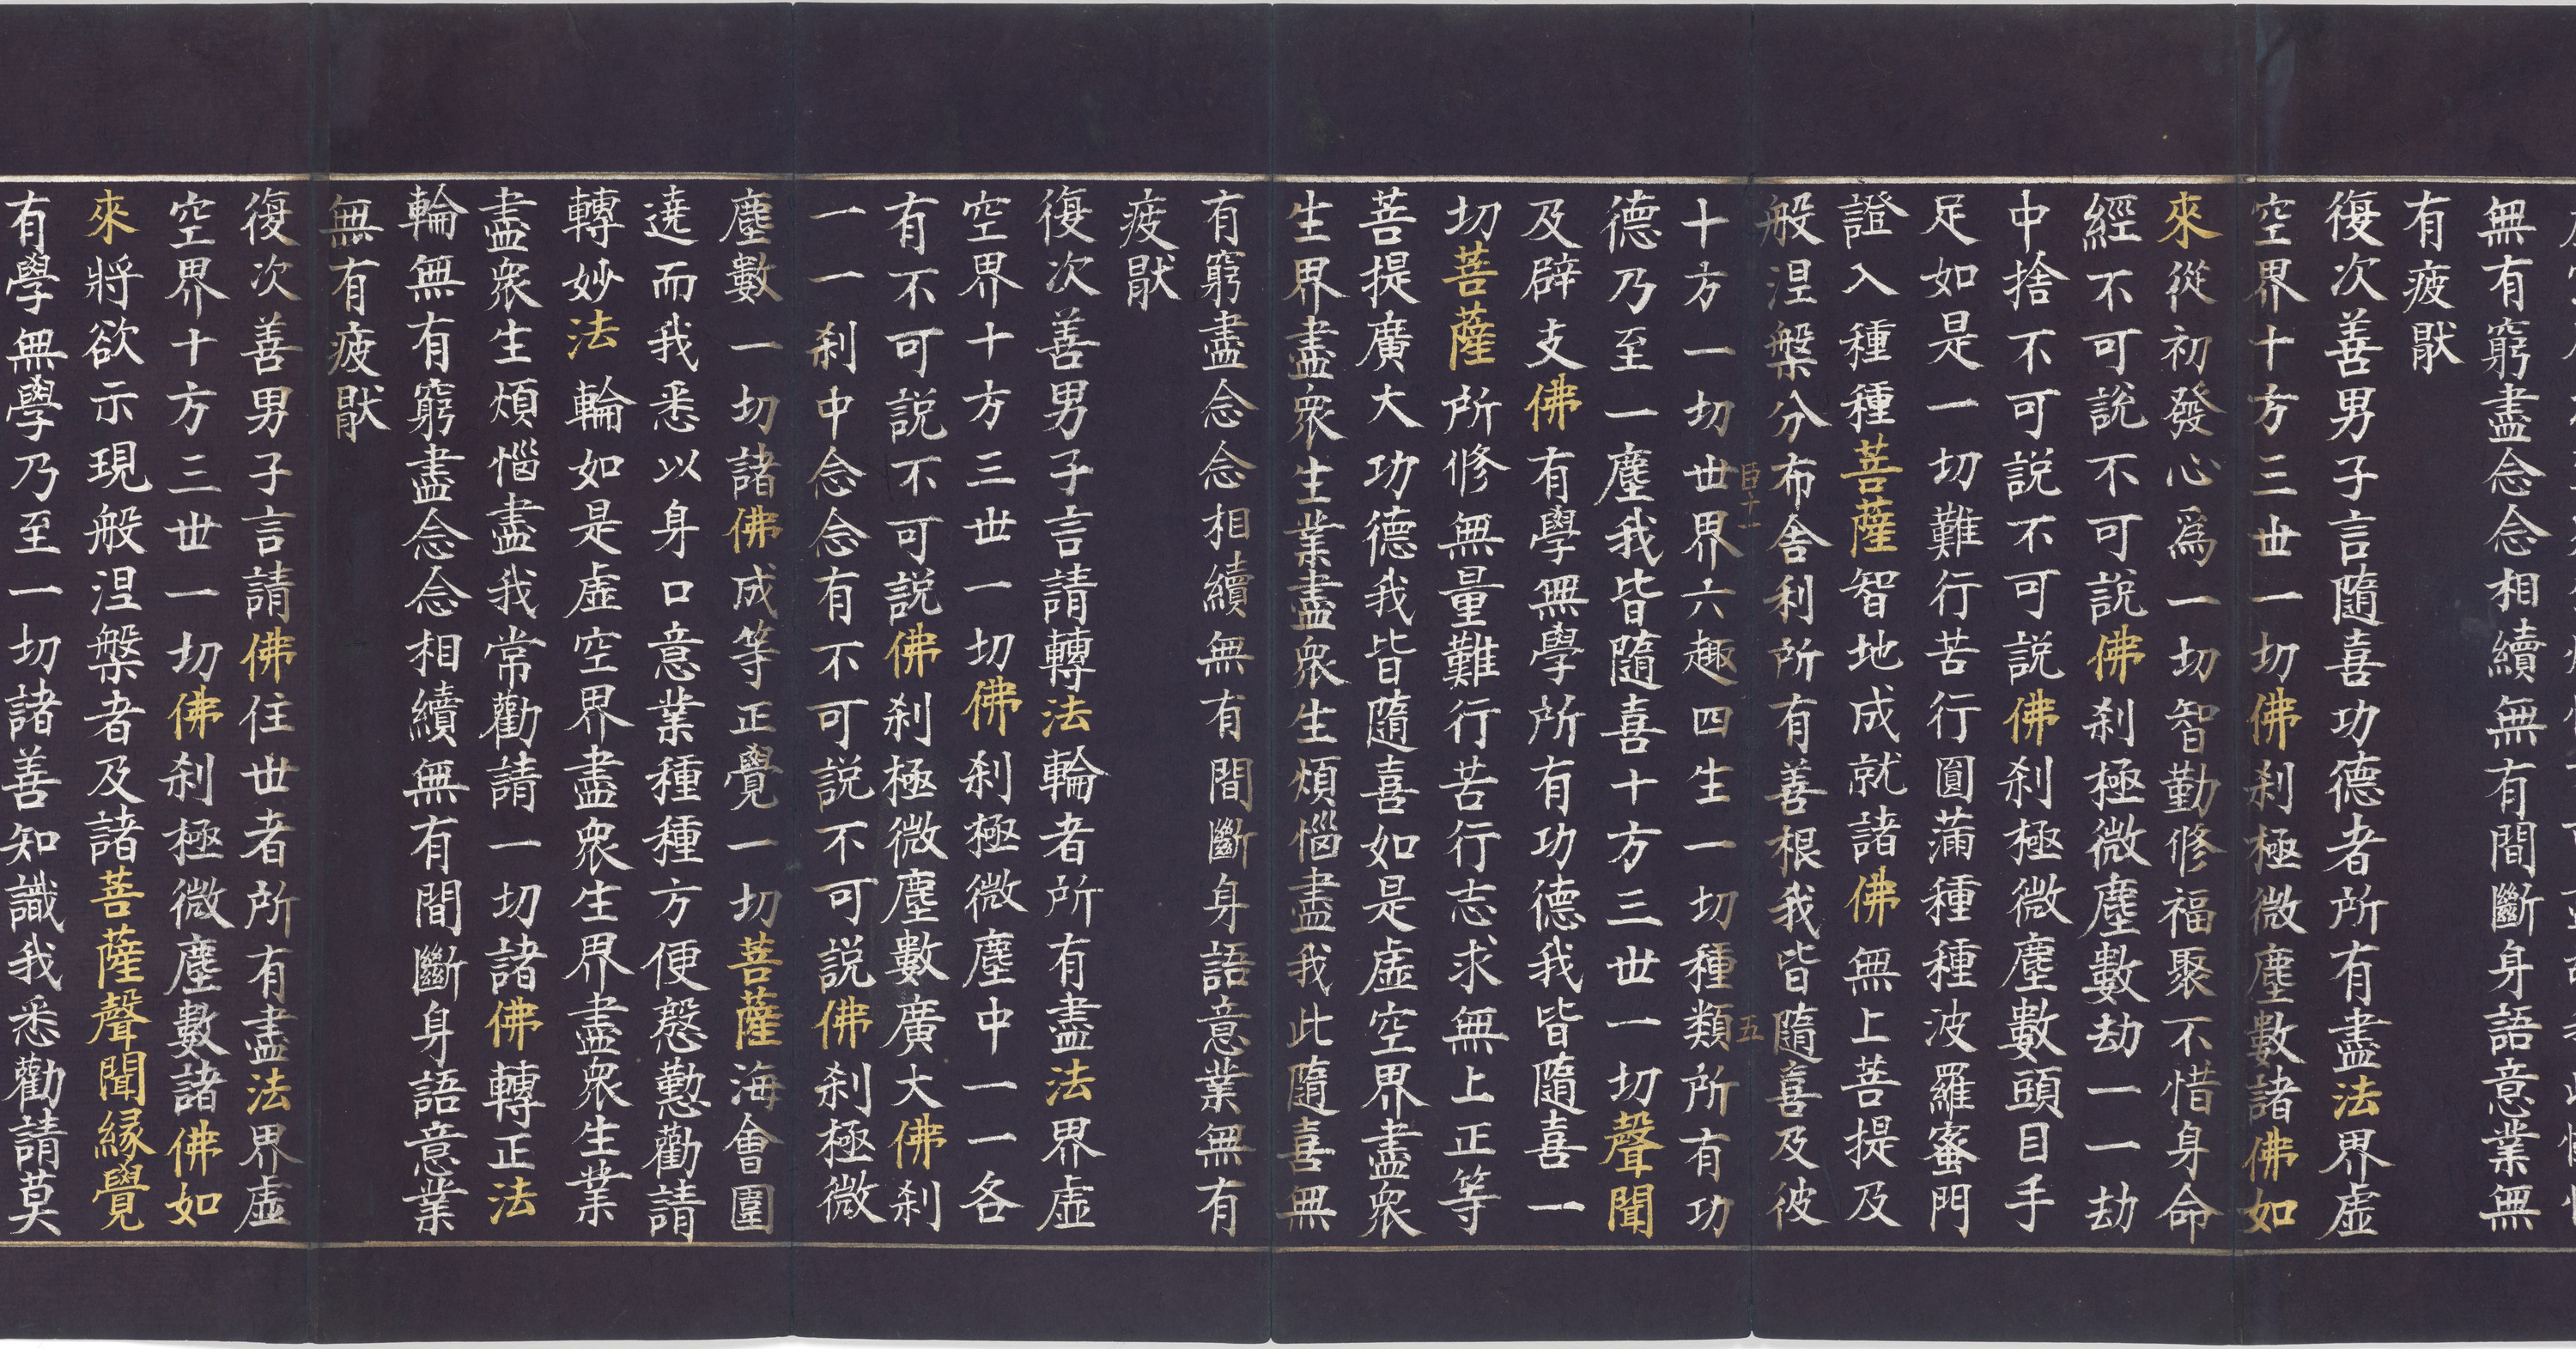 無有窮盡念念相續無有間斷身語意業無
有疲猒
復次善男子言隨喜功德者所有盡法界虛
空界十方三世一切佛刹極微塵數諸佛如
來從初發心爲一切智勤修福聚不惜身命
經不可說不可說佛刹極微塵數劫一一劫
中捨不可說不可說佛刹極微塵數頭目手
足如是一切難行苦行圓蒲種種波羅蜜門
證入種種菩薩智地成就諸佛無上菩提及
般涅槃分布舍利所有善根我皆隨喜及彼
臣十一 五
十方一切世界六趣四生一切種類所有功
德乃至一塵我皆隨喜十方三世一切聲聞
及辟支佛有學無學所有功德我皆隨喜一
切菩薩所修無量難行苦行志求無上正等
菩提廣大功德我皆隨喜如是虛空界盡衆
生界盡衆生業盡衆生煩惱盡我此隨喜無
有窮盡念念相續無有間斷身語意業無有
疲猒
復次善男子言請轉法輪者所有盡法界虛
空界十方三世一切佛刹極微塵中一一各
有不可說不可說佛刹極微塵數廣大佛刹
一一刹中念念有不可說不可說佛刹極微
塵數一切諸佛成等正覺一切菩薩海會圍
遶而我悉以身口意業種種方便慇懃勸請
轉妙法輪如是虛空界盡衆生界盡衆生業
盡衆生煩惱盡我常勸請一切諸佛轉正法
輪無有窮盡念念相續無有間斷身語意業
無有疲猒
復次善男子言請佛住世者所有盡法界虛
空界十方三世一切佛刹極微塵數諸佛如
來將欲示現般涅槃者及諸菩薩聲聞緣覺
有學無學乃至一切諸善知識我悉勸請莫